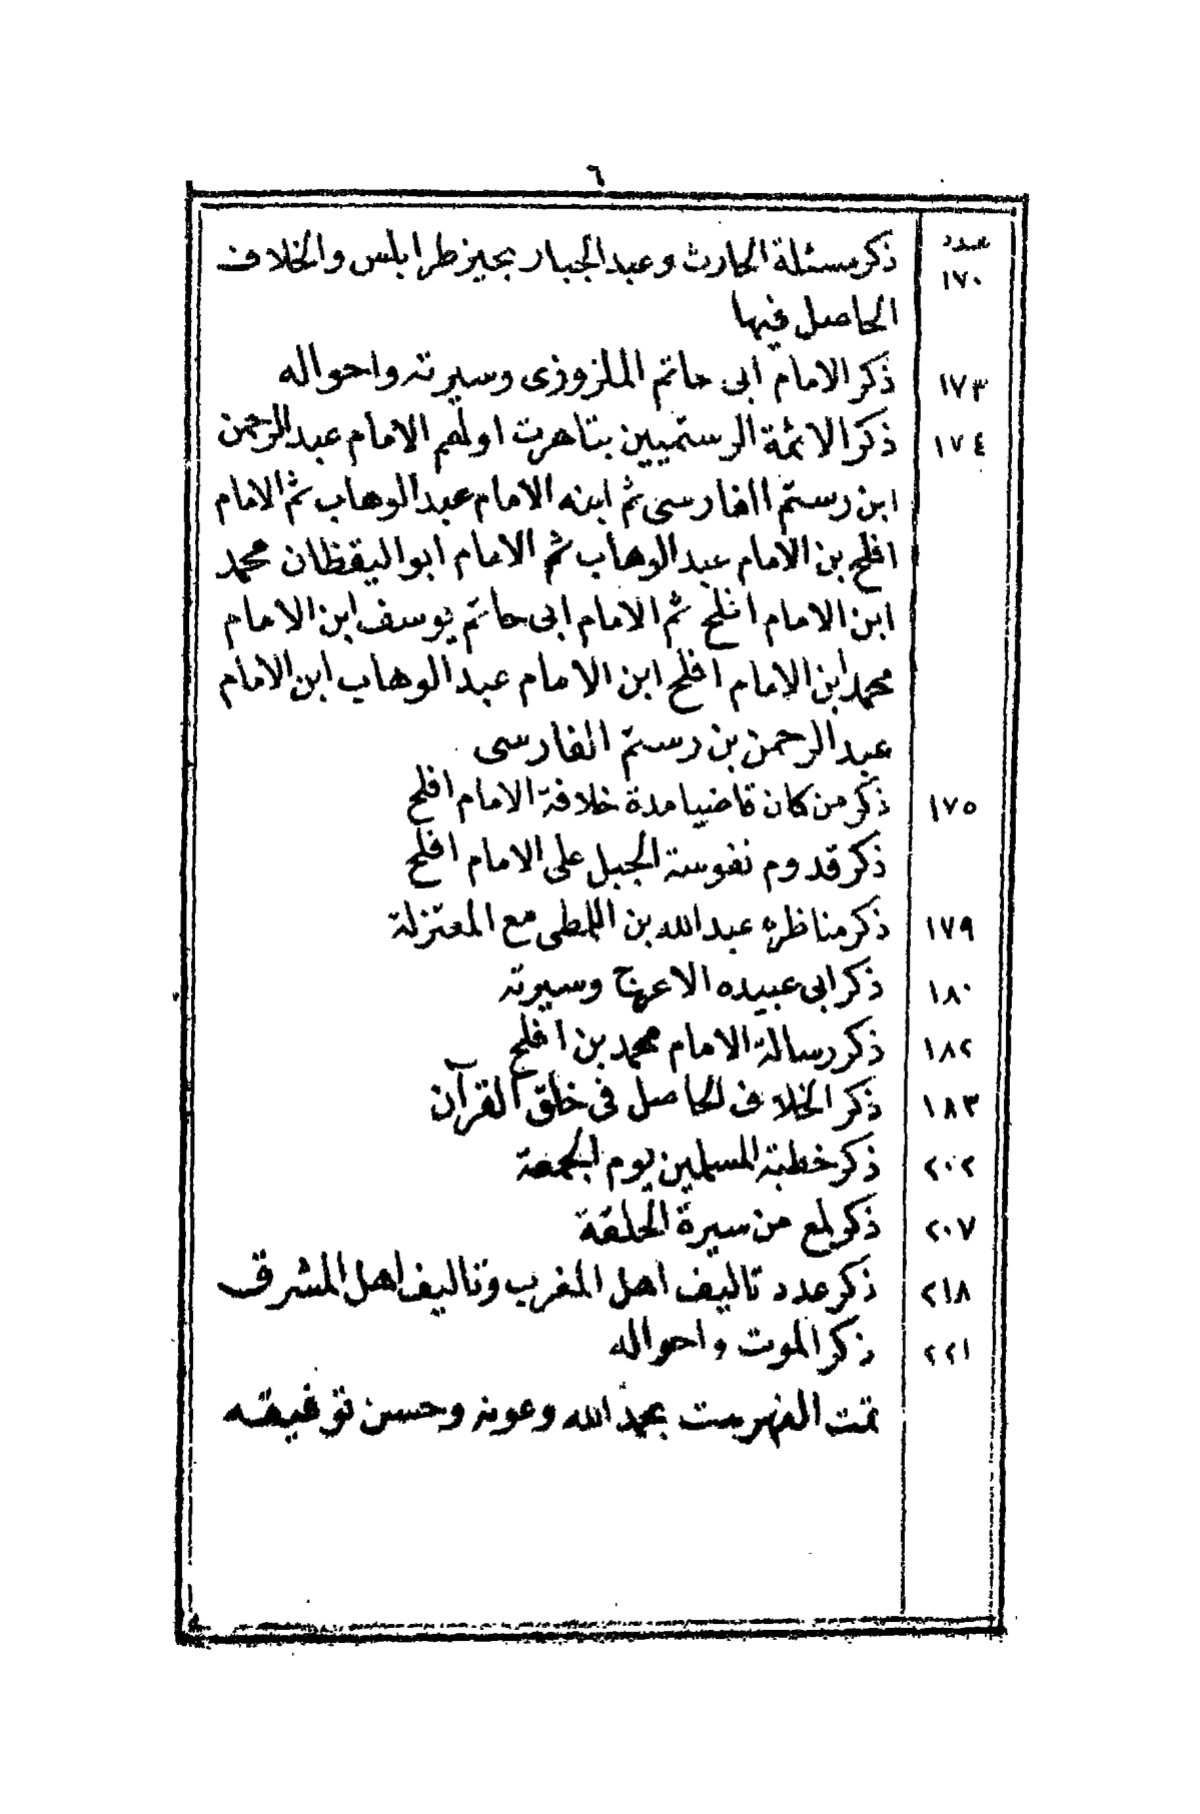 ٦
عدد
١٧٠ ذكر مسئلة الحارث وعبد الجبار بحيز طرابلس والخلاف
الحاصل فيها
١٧٣ ذكر الامام ابى حاتم الملزوزى وسيرته واحواله
١٧٤ ذكر الائمة الرستميين بتاهرت اولهم الامام عبد الرحمن
ابن رستم الفارسى ثم ابنه الامام عبد الوهاب ثم الامام
افلح بن الامام عبد الوهاب ثم الامام ابو اليقظان محمد
ابن الامام افلح ثم الامام ابى حاتم يوسف ابن الامام
محمد ابن الامام افلح ابن الامام عبد الوهاب ابن الامام
عبد الرحمن بن رستم الفارسى
١٧٥ ذكر من كان قاضيا مدة خلافة الامام افلح
ذكر قدوم نفوسة الجبل على الامام افلح
١٧٩ ذكر مناظرة عبد الله بن اللمطى مع المعتزلة
١٨٠ ذكر ابى عبيده الاعرج وسيرته
١٨٢ ذكر رسالة الامام محمد بن افلح
١٨٣ ذكر الخلاف الحاصل فى خلق القرآن
٢٠٢ ذكر خطبة المسلمين يوم الجمعة
٢٠٧ ذكر لمع من سيرة الحلقة
٢١٨ ذكر عدد تاليف اهل المغرب وتاليف اهل المشرق
٢٢١ ذكر الموت واحواله
تمت الفهرست بحمد الله وعونه وحسن توفيقه